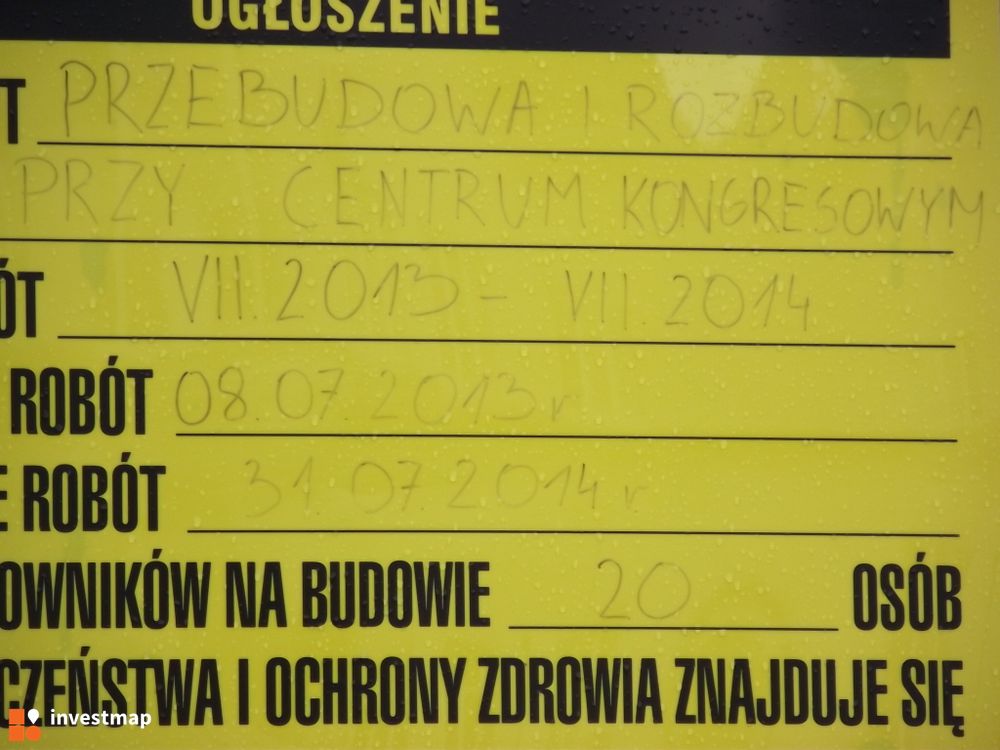 OGŁOSZENIE
T PRZEBUDOWA I ROZBUDOWA
PRZY CENTRUM KONGRESOWYM
ÓT VII.2013 - VII.2014
ROBÓT 08.07.2013 r
E ROBÓT 31.07.2014 r
OWNIKÓW NA BUDOWIE 20 OSÓB
CZEŃSTWA I OCHRONY ZDROWIA ZNAJDUJE SIĘ
investmap